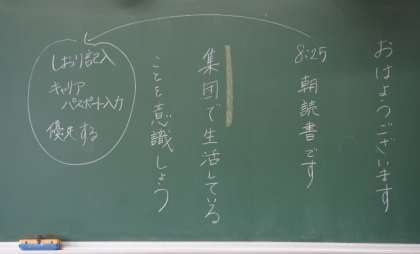 おはようございます
8:25 朝読書です
集団で生活している
ことを意識しょう
しおり記入
キャリア
パスポート入力
優先する